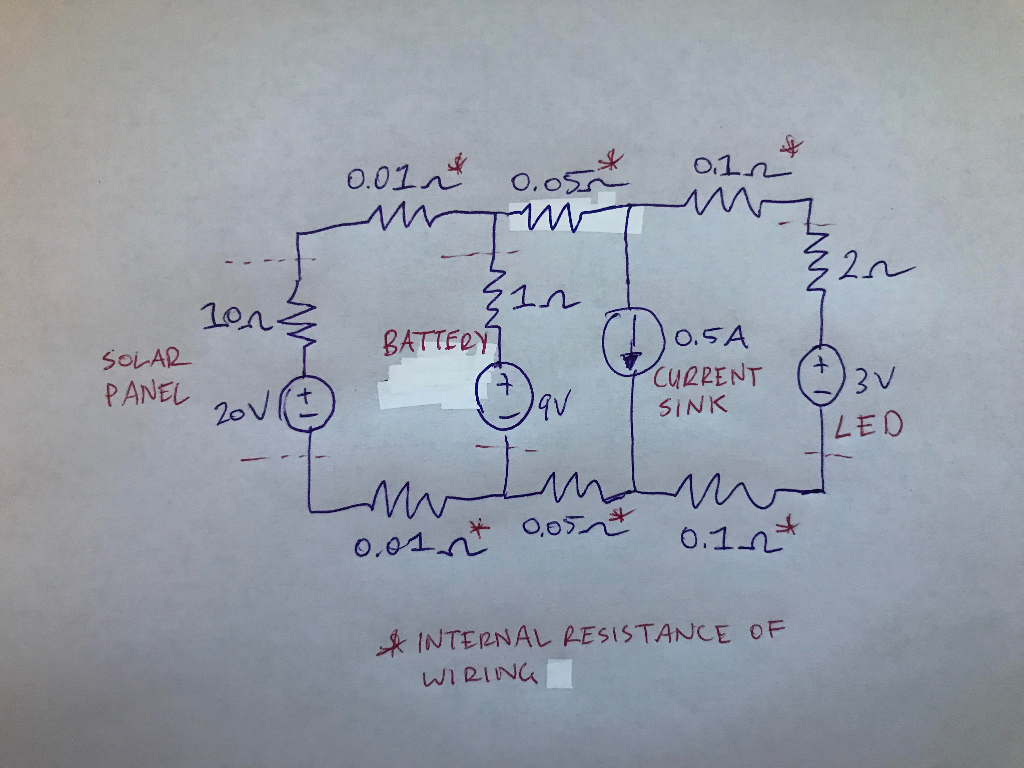 0.01Ω*
0.05Ω*
0.1Ω*
10Ω
1Ω
2Ω
SOLAR
PANEL
20V
+
-
BATTERY
+
-
9V
0.5A
CURRENT
SINK
+
-
3V
LED
0.01Ω*
0.05Ω*
0.1Ω*
* INTERNAL RESISTANCE OF
WIRING